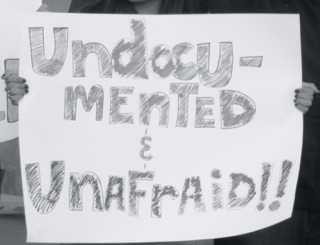 UnDocu-
MEnTED
&
UnAFraiD!!